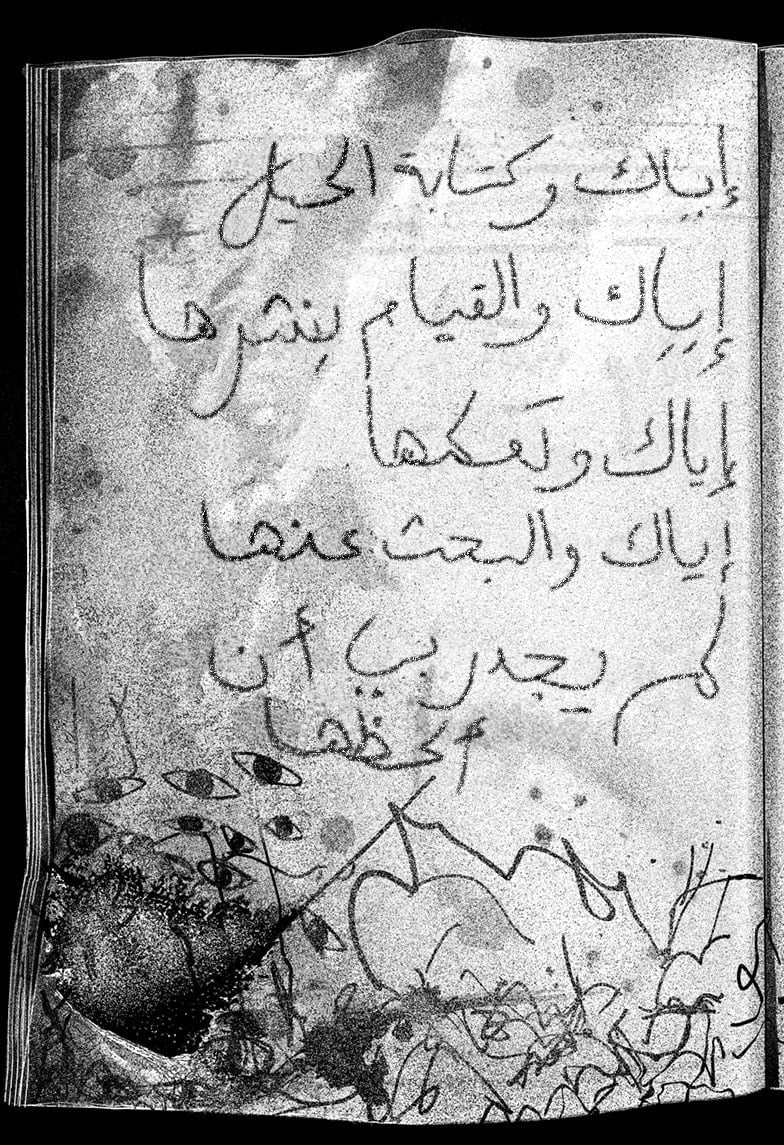 إياك وكتابة الحيل
إياك والقيام بنشرها
إياك ولعكها
إياك والبحث عنها
لم يجدر بي أن
ألحظها